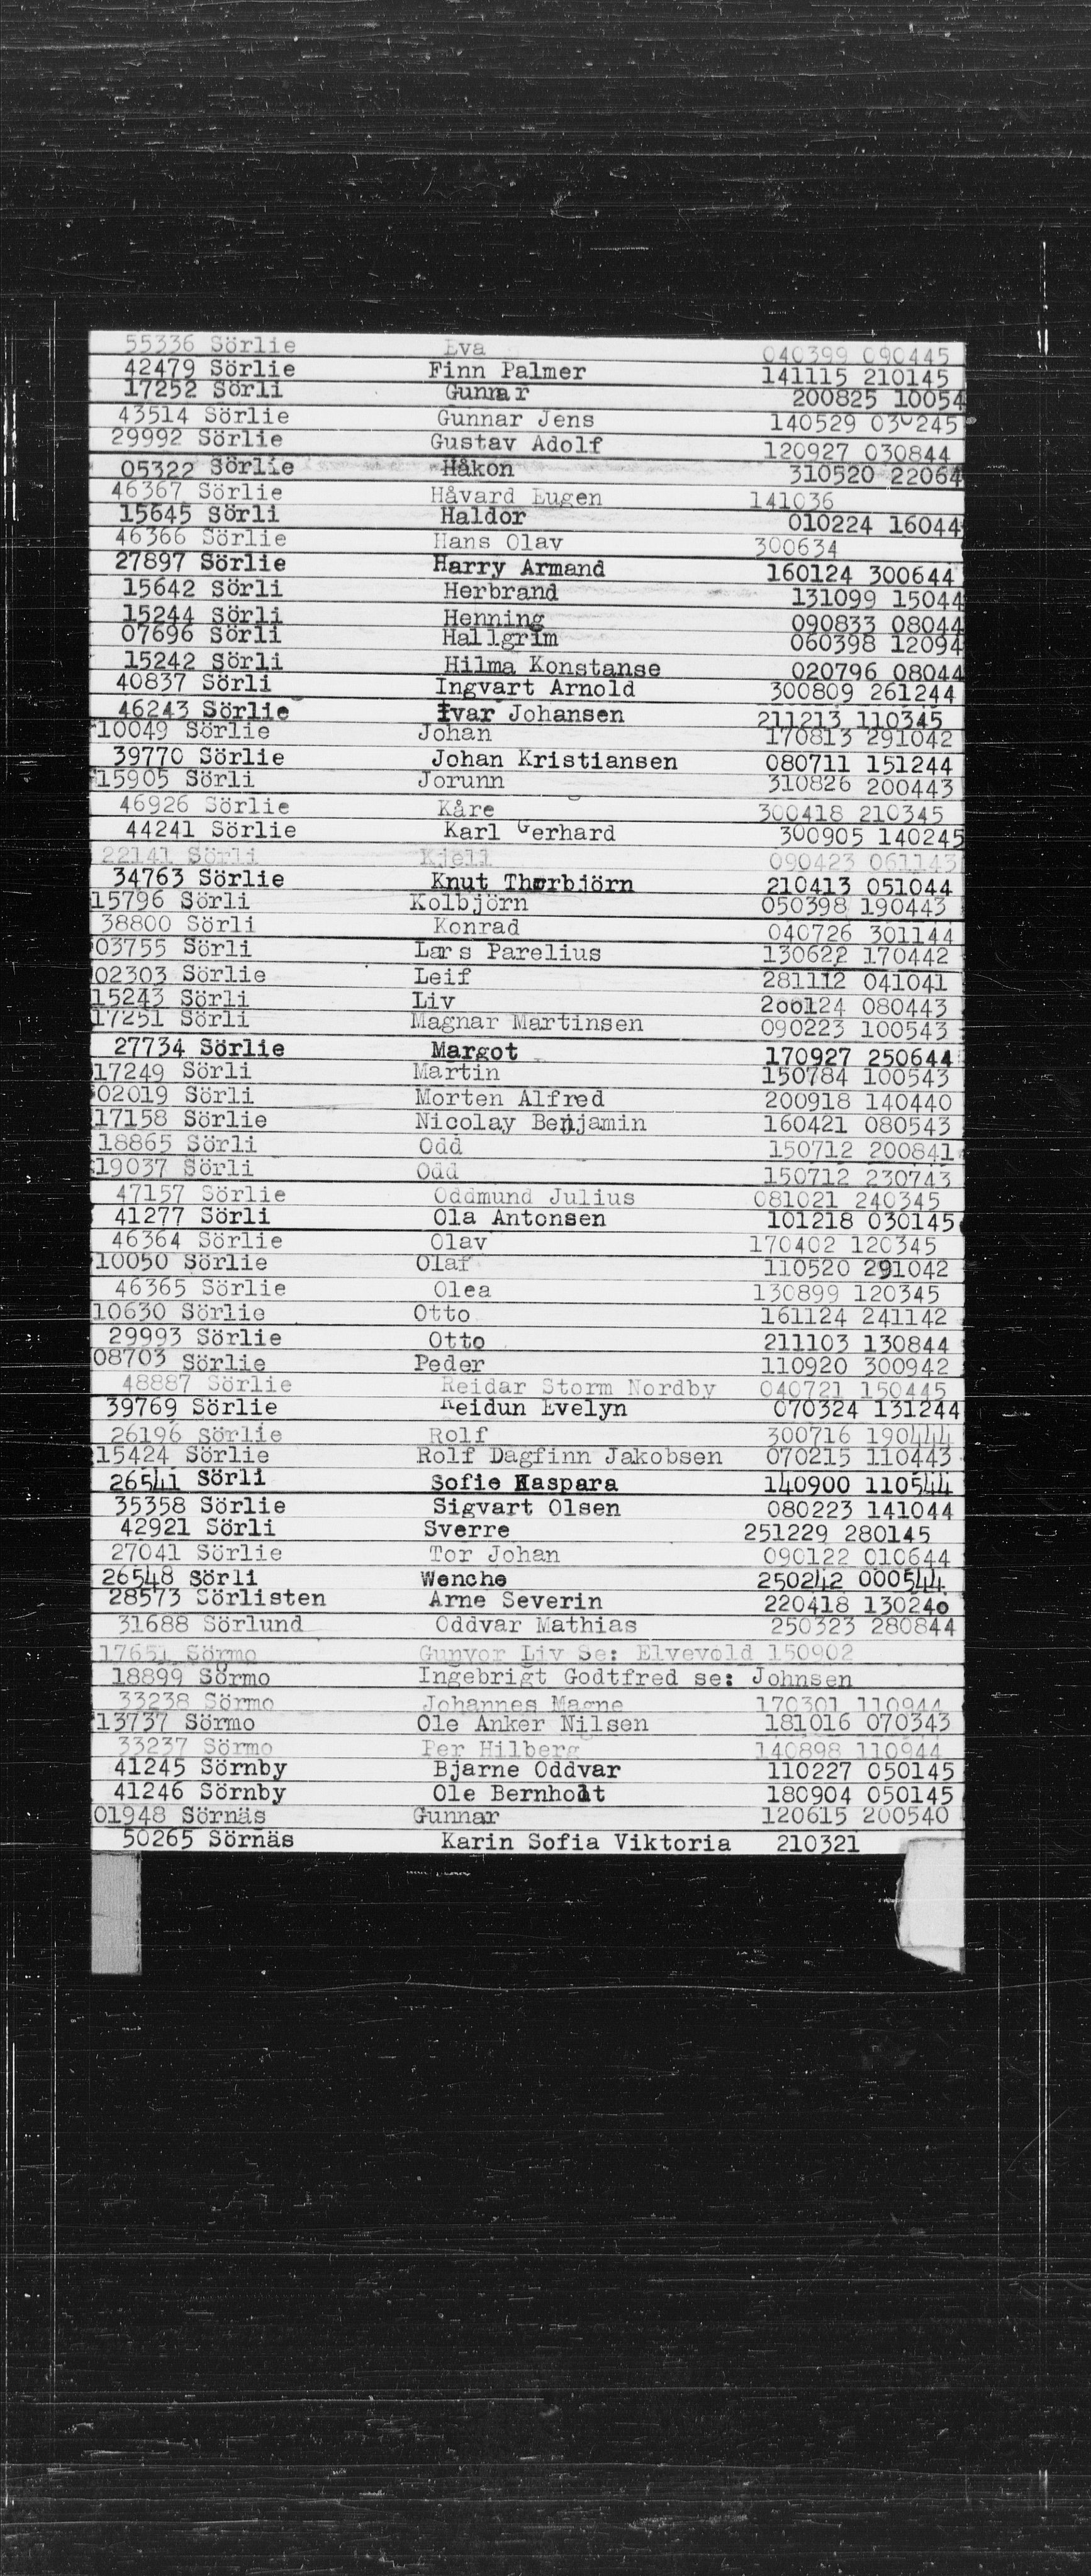 55336 Sörlie Eva 040399 090445
42479 Sörlie Finn Palmer 141115 210145
17252 Sörli Gunnar 200825 10054
43514 Sörlie Gunnar Jens 140529 030245
29992 Sörlie Gustav Adolf 120927 030844
05322 Sörlie Håkon 310520 22064
46367 Sörlie Håvard Eugen 141036
15645 Sörli Haldor 010224 16044
46366 Sörlie Hans Olav 300634
27897 Sörlie Harry Armand 160124 300644
15642 Sörli Herbrand 131099 15044
15244 Sörli Henning 090833 08044
07696 Sörli Hallgrim 060398 12094
15242 Sörli Hilma Konstanse 020796 08044
40837 Sörli Ingvart Arnold 300809 261244
46243 Sörlie Ivar Johansen 211213 110345
10049 Sörlie Johan 170813 291042
39770 Sörlie Johan Kristiansen 080711 151244
15905 Sörli Jorunn 310826 200443
46926 Sörlie Kåre 300418 210345
44241 Sörlie Karl Gerhard 300905 140245
22141 Sörli Kjell 090423 061143
34763 Sörlie Knut Thorbjörn 210413 051044
15796 Sörli Kolbjörn 050398 190443
38800 Sörli Konrad 040726 301144
03755 Sörli Lars Parelius 130622 170442
02303 Sörlie Leif 281112 041041
15243 Sörli Liv 200124 080443
17251 Sörli Magnar Martinsen 090223 100543
27734 Sörlie Margot 170927 250644
17249 Sörli Martin 150784 100543
02019 Sörli Morten Alfred 200918 140440
17158 Sörlie Nicolay Benjamin 160421 080543
18865 Sörli Odd 150712 200841
19037 Sörli Odd 150712 230743
47157 Sörlie Oddmund Julius 081021 240345
41277 Sörli Ola Antonsen 101218 030145
46364 Sörlie Olav 170402 120345
10050 Sörlie Olaf 110520 291042
46365 Sörlie Olea 130899 120345
10630 Sörlie Otto 161124 241142
29993 Sörlie Otto 211103 130844
08703 Sörlie Peder 110920 300942
48887 Sörlie Reidar Storm Nordby 040721 150445
39769 Sörlie Reidun Evelyn 070324 131244
26196 Sörlie Rolf 300716 190444
15424 Sörlie Rolf Dagfinn Jakobsen 070215 110443
26541 Sörli Sofie Kaspara 140900 110544
35358 Sörlie Sigvart Olsen 080223 141044
42921 Sörli Sverre 251229 280145
27041 Sörlie Tor Johan 090122 010644
26548 Sörli Wenche 250242 000544
28573 Sörlisten Arne Severin 220418 130240
31688 Sörlund Oddvar Mathias 250323 280844
17651 Sörmo Gunvor Liv Se: Elvevold 150902
18899 Sörmo Ingebrigt Godtfred se: Johnsen
33238 Sörmo Johannes Magne 170301 110944
13737 Sörmo Ole Anker Nilsen 181016 070343
33237 Sörmo Per Hilberg 140898 110944
41245 Sörnby Bjarne Oddvar 110227 050145
41246 Sörnby Ole Bernhodt 180904 050145
01948 Sörnäs Gunnar 120615 200540
50265 Sörnäs Karin Sofia Viktoria 210321